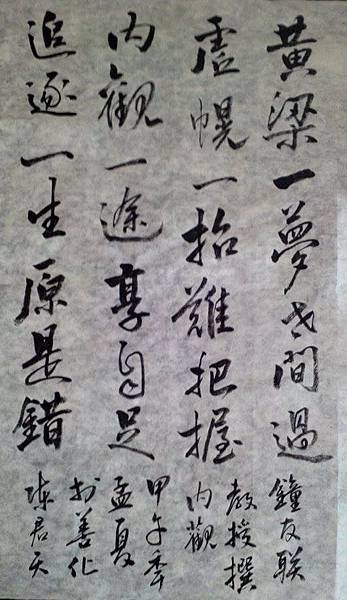 黃梁一夢世間過
虛幌一招難把握
內觀一途享自足
追逐一生原是錯
鐘友联
教授撰
內觀
甲午年
孟夏
於善化
陳君天